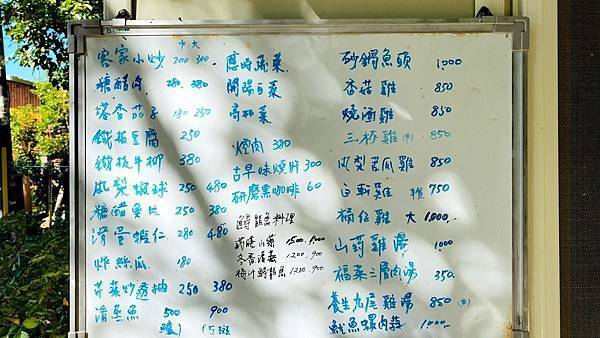 中 大
客家小炒 200 300
糖醋肉 280 380
塔香茄子 180 250
鐵板豆腐 250
鐵板牛柳 380
鳳梨蝦球 250 480
糖醋魚片 250 480
滑蛋蝦仁 280 480
炸絲瓜 180
250 380
清蒸魚 500 900
應時蔬菜
開陽白菜
高山菜
焢肉 380
古早味燒肝 300
研磨黑咖啡 60
鱘龍魚料理
1500.
冬香清蒸 1200. 900
1200. 900
砂鍋魚頭 1,000
香菇雞 850
燒酒雞 850
三杯雞 850
鳳梨苦瓜雞 850
白斬雞 750
桶仔雞 大 1,000.
山藥雞湯 1000
福菜三層肉湯 350.
養生九尾雞湯 850
魷魚螺肉蒜 1,000.